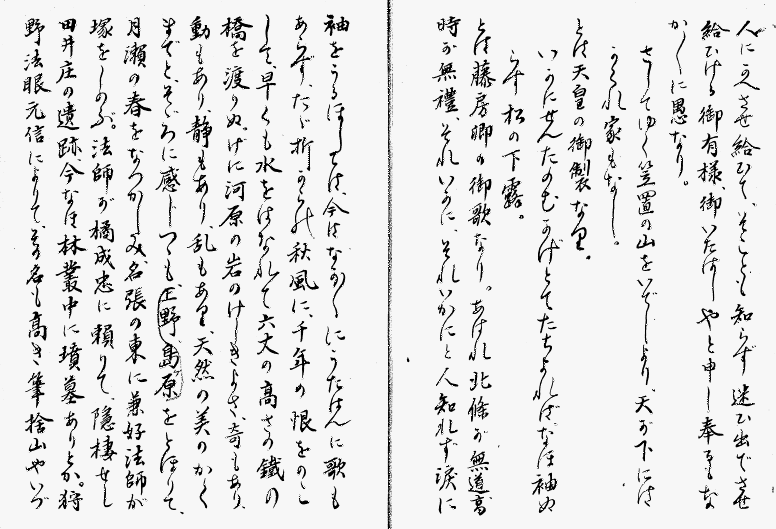 人にかへさせ給ひて、そことも知らず迷ひ出でさせ
給ひける御有様、御いたはしやと申し奉るもな
か〱に愚なり。
さしてゆく笠置の山をいでしより、天が下には
かくれ家もなし。
とは天皇の御製なり。
いかにせんたのむかげとてたちよればなほ袖ぬ
らす松の下露。
とは藤房卿の御歌なり。あはれ北條が無道、高
時が無禮、それいかに、それいかにと人知れず涙に
袖をうるほしては、今はなか〱にうたはんに歌も
あらず、たゞ折からの秋風に、千年の恨をのこ
して、早くも水をはなれて六丈の高さの鐵の
橋を渡りぬ。げに河原の岩のけしきよさ、奇もあり、
動もあり、静もあり、乱もあり、天然の美のかく
までと、そゞろに感じつゝも、上野、島原をとほりて、
月瀬の春をなつかしみ、名張の東に兼好法師が
塚をしのぶ。法師が橘成忠に頼りて、隠棲せし
田井庄の遺跡、今なほ林叢中に墳墓ありとか。狩
野法眼元信によりて、その名も高き筆捨山やいづ